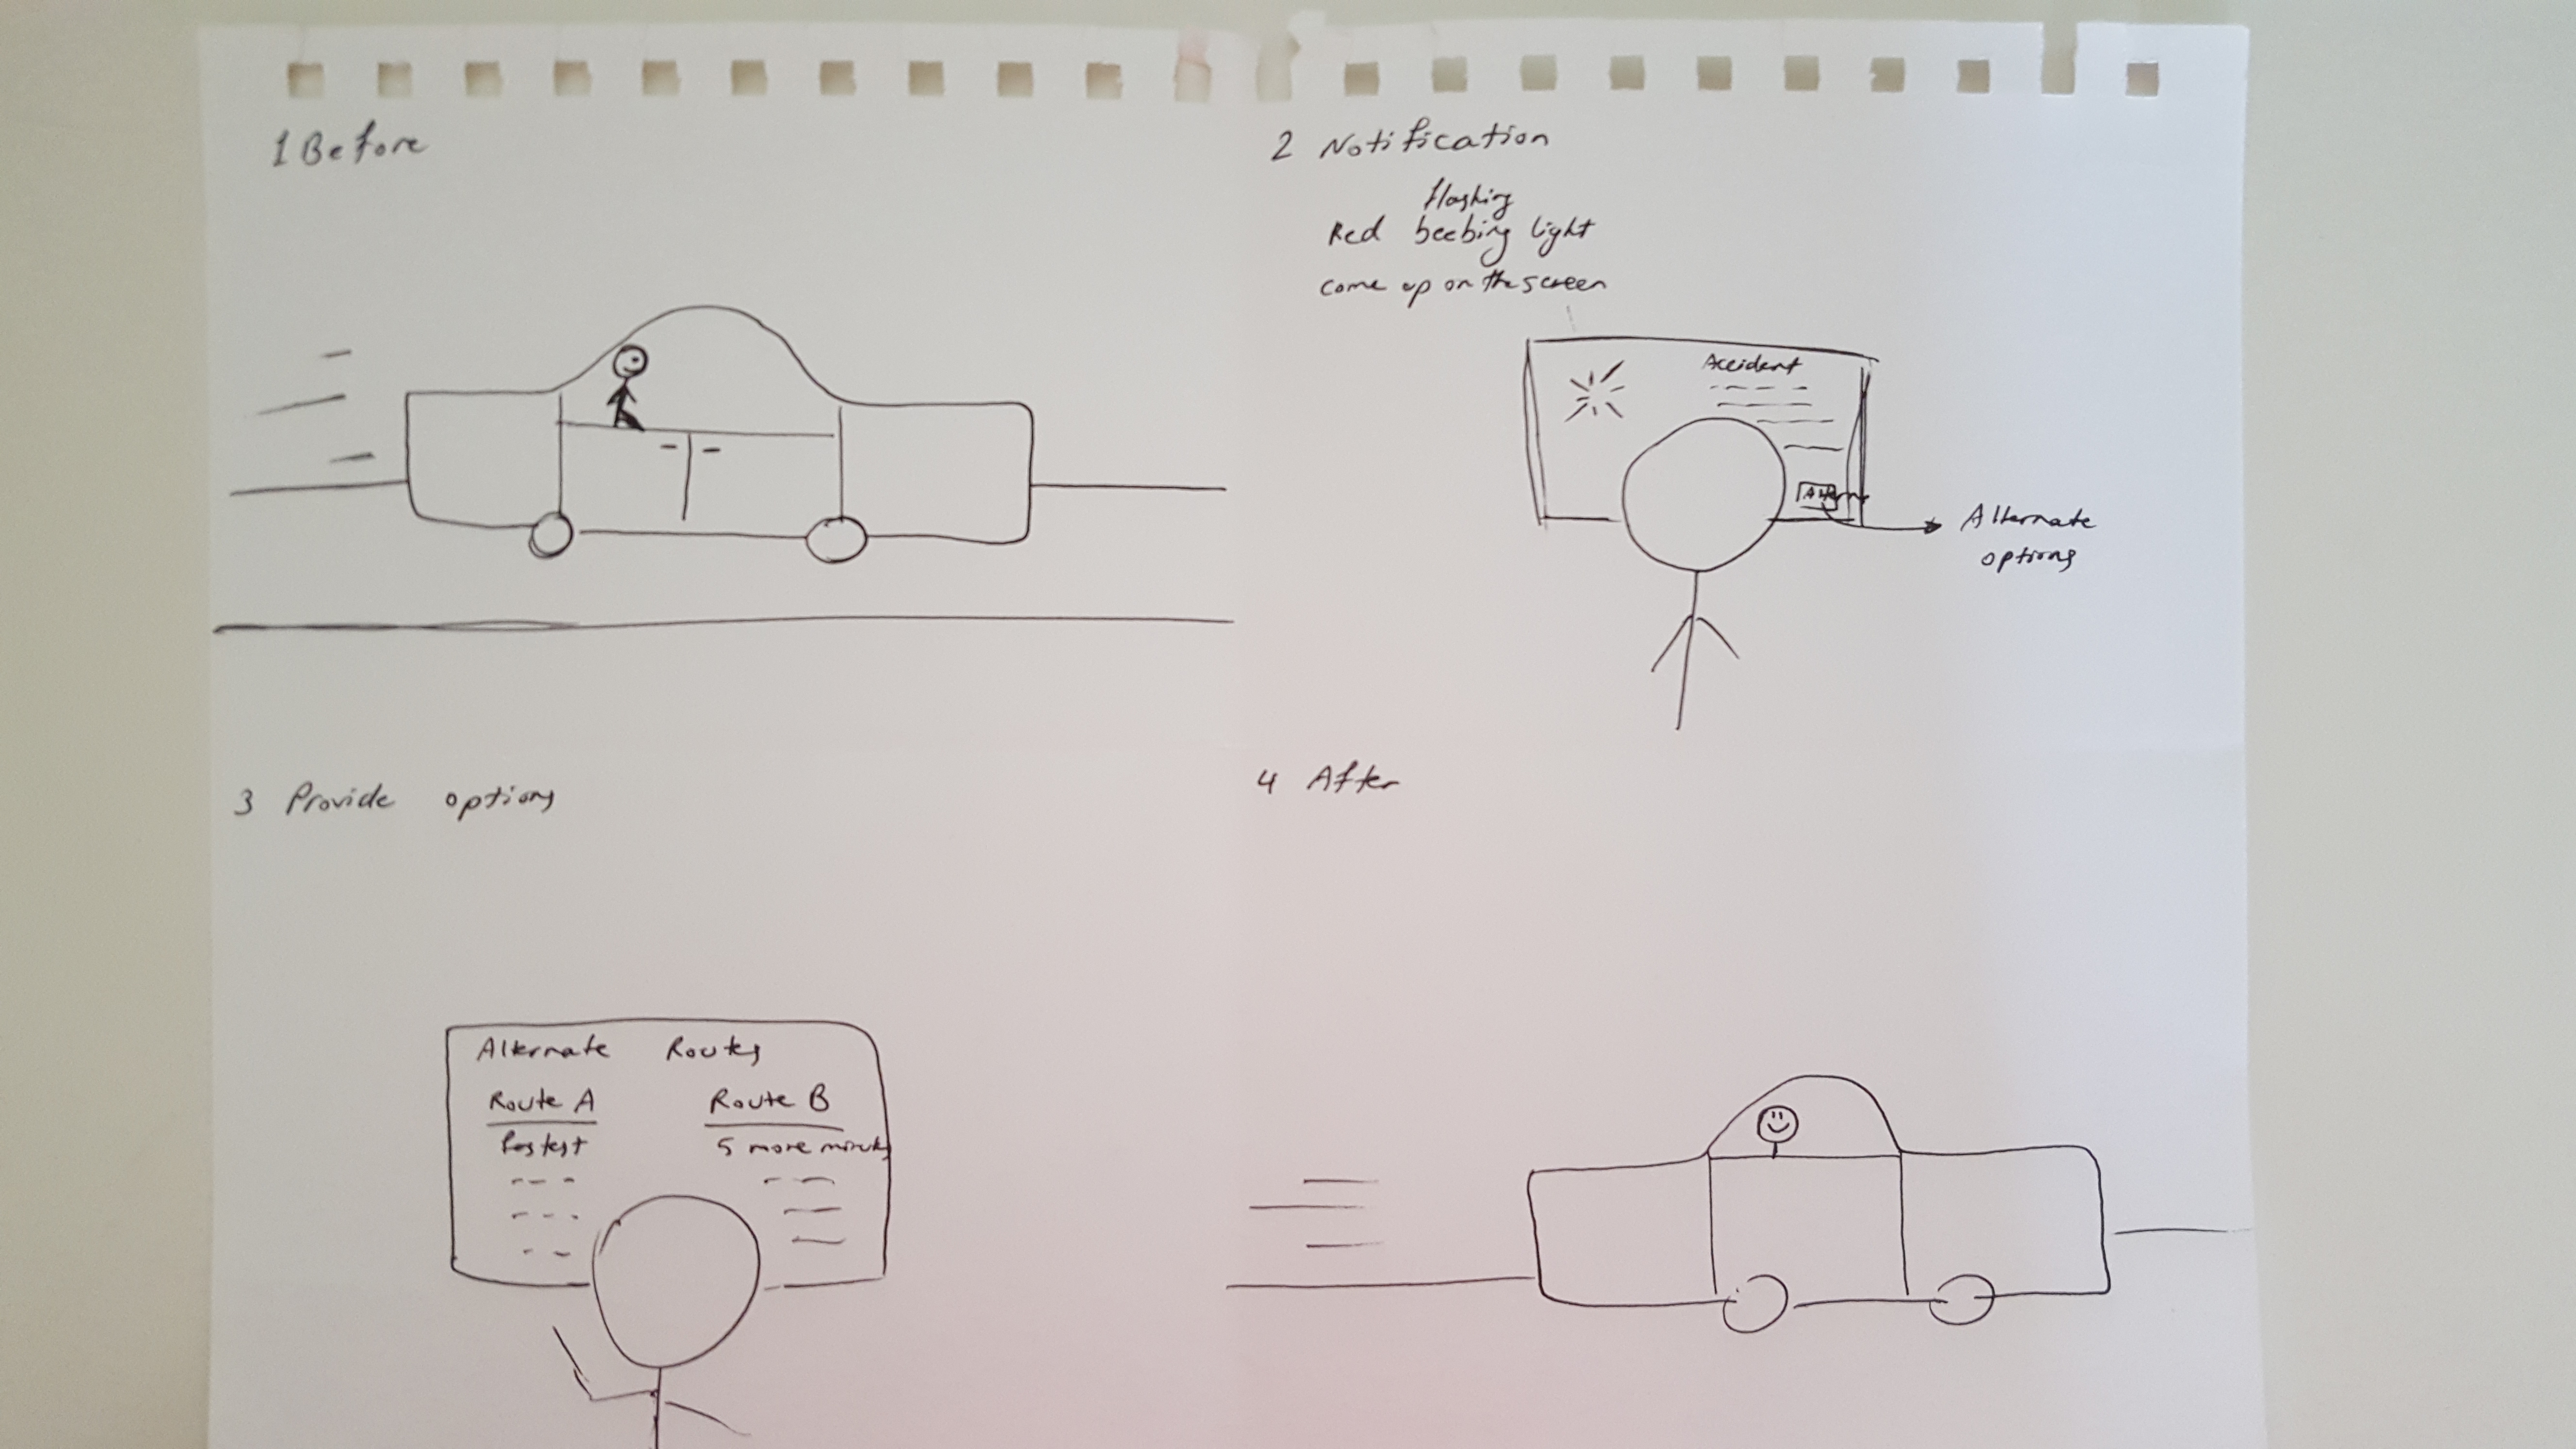 1 Before
2 Notification
flashing
Red beebing light
come up on the screen
Accident
Altern
Alternate
options
3 Provide options
Alternate Routes
Route A
fastest
Route B
5 more minutes
4 After